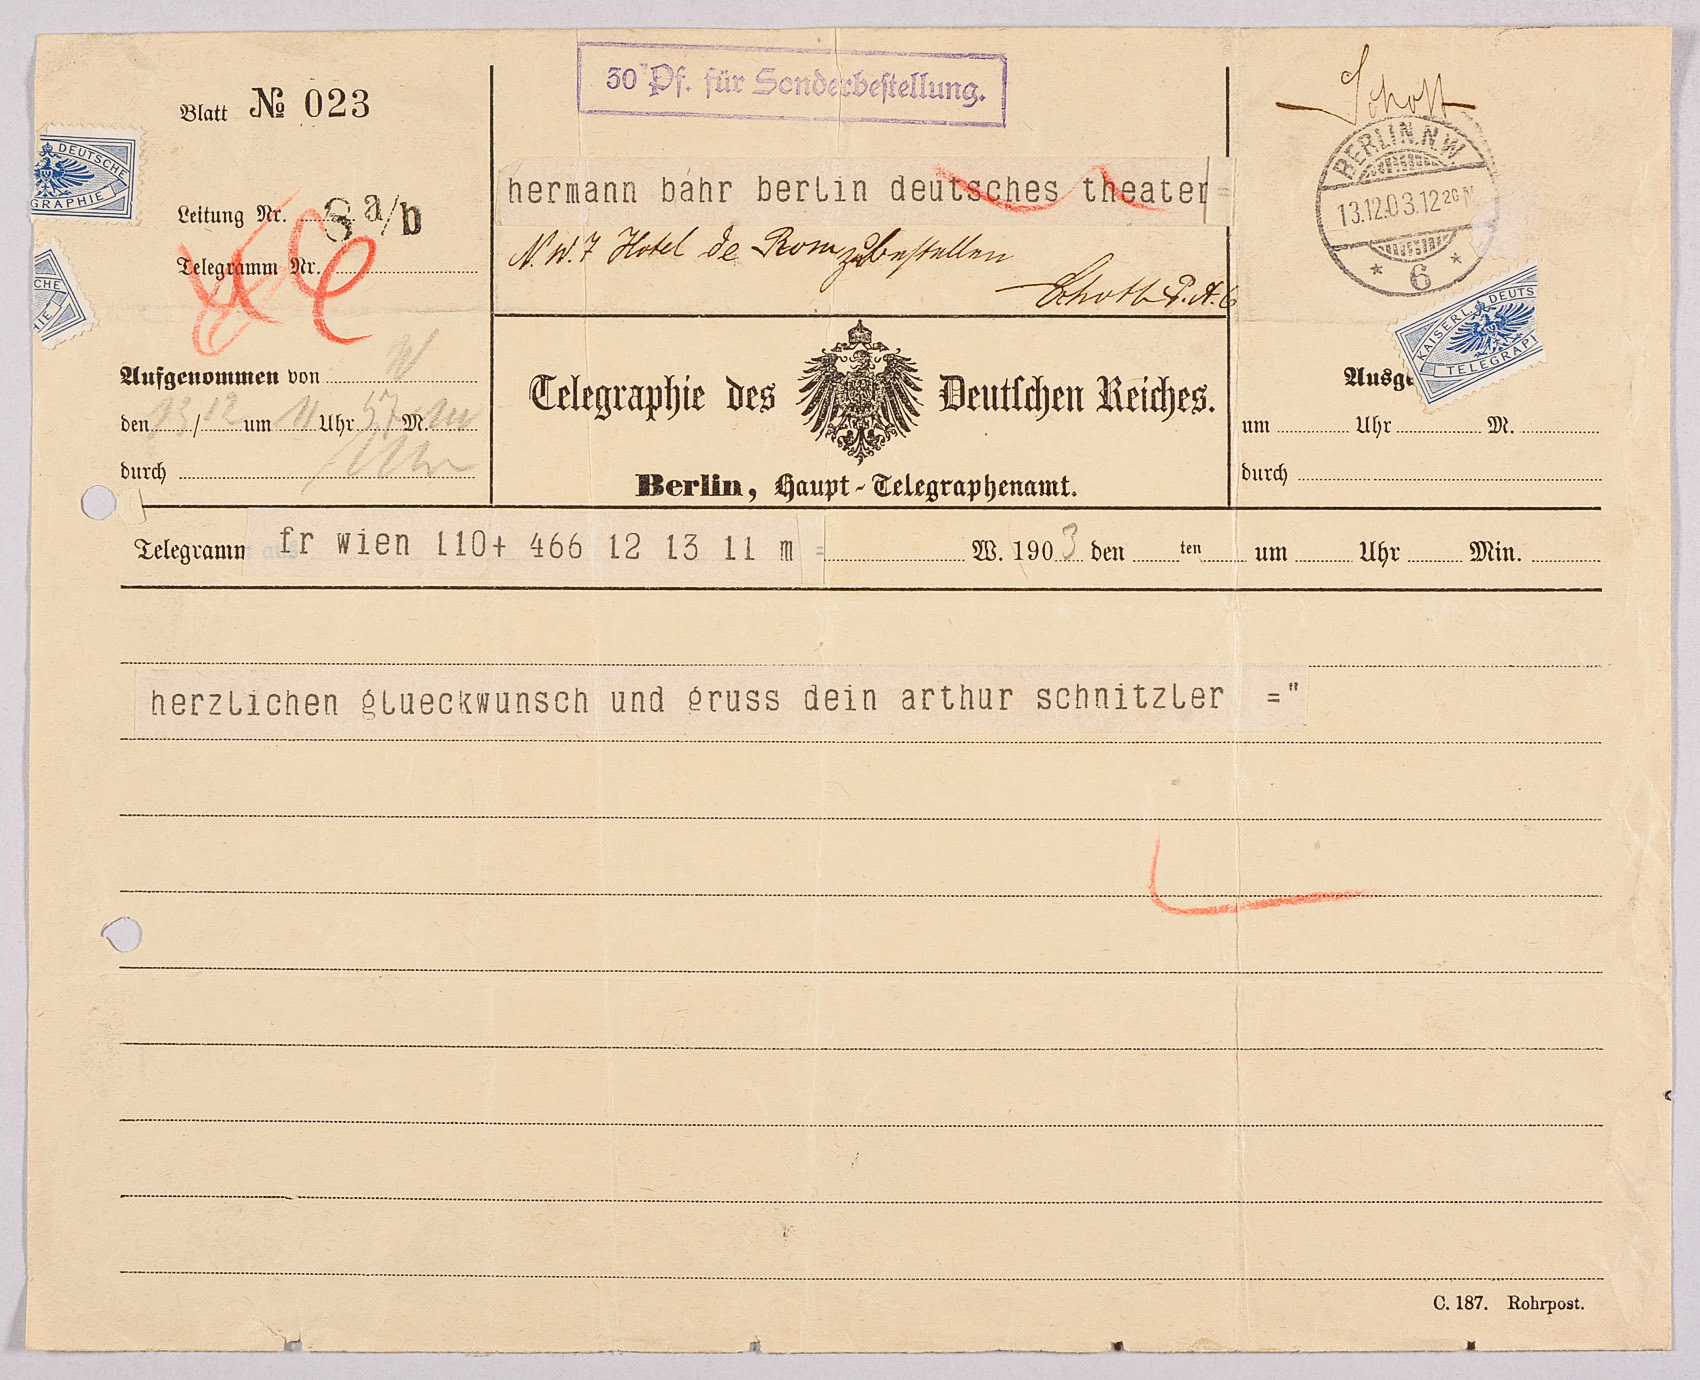 50 Pf. für Sonderbestellung.
Schott
Blatt № 023
DEUTSCHE
GRAPHIE
BERLIN.N.W.
13.12.03.12 20 N
* 6 *
hermann bahr berlin deutsches theater =
Leitung Nr. 8 a/b
N. W. 7 Hotel de Rom zu bestellen
Telegramm Nr.
Schott P. A. 6
CHE
HIE
KAISERL. DEUTS
TELEGRAPH
Aufgenommen von
Telegraphie des Deutschen Reiches.
Ausge
den 13/12 um 11 Uhr 57 M.
um Uhr M.
durch
durch
Berlin, Haupt-Telegraphenamt.
Telegramm fr wien 110+ 466 12 13 11 m = W. 1903 den ten um Uhr Min.
herzlichen glueckwunsch und gruss dein arthur schnitzler ="
C. 187. Rohrpost.